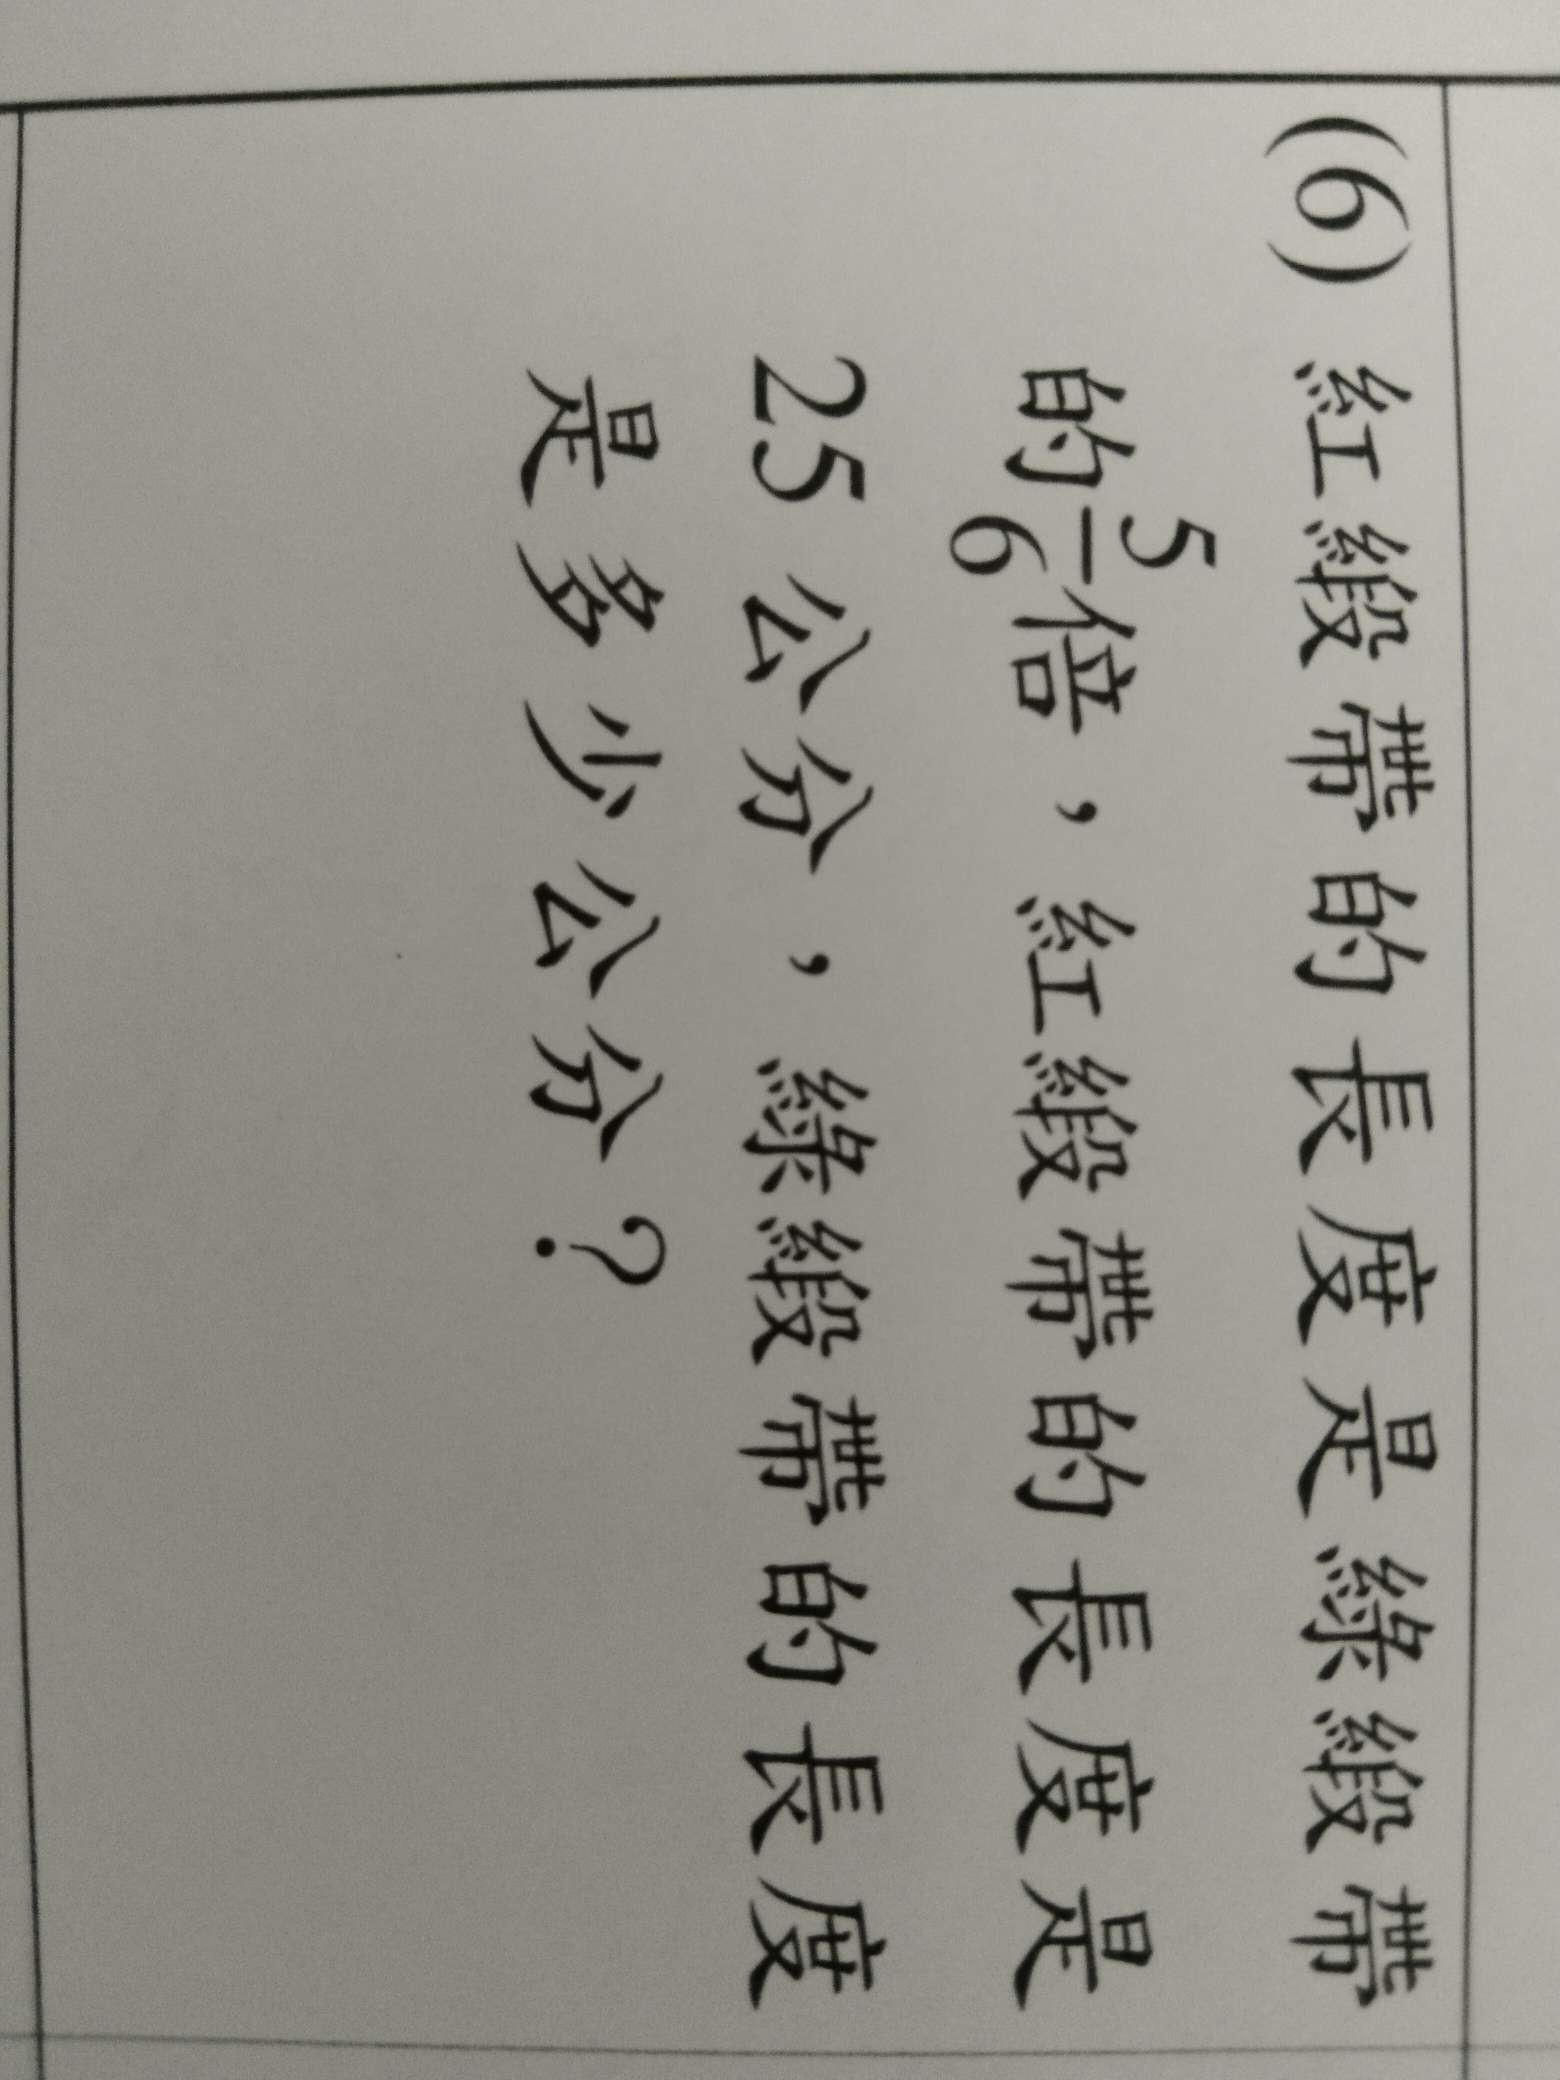 (6) 紅緞帶的長度是綠緞帶
的5/6倍，紅緞帶的長度是
25公分，綠緞帶的長度
是多少公分？